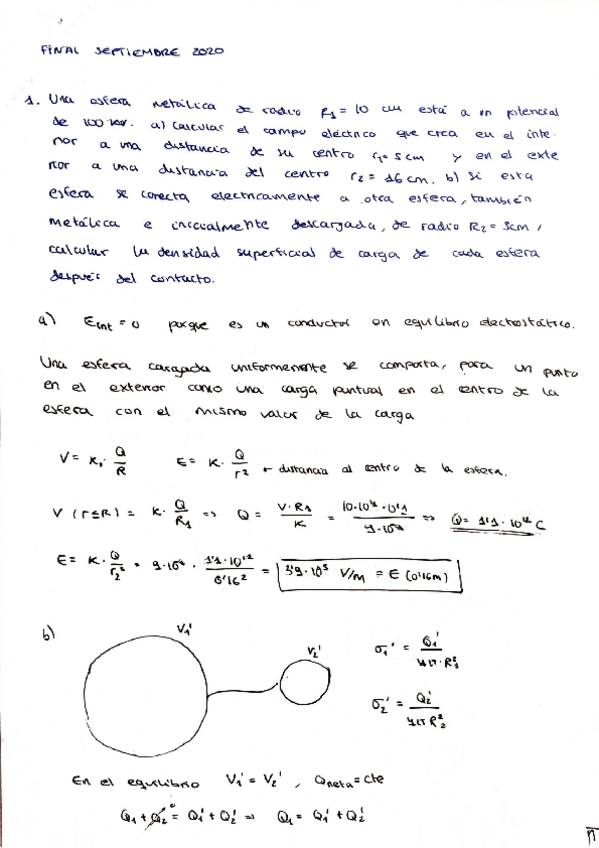 FINAL SEPTIEMBRE 2020
1. Una esfera metálica de radio R₁ = 10 cm está a un potencial
de 100 kV. a) Calcular el campo eléctrico que crea en el inte-
rior a una distancia de su centro r₁= 5 cm y en el exte
rior a una distancia del centro r₂ = 16 cm. b) Si esta
esfera se conecta electricamente a otra esfera, también
metálica e inicialmente descargada, de radio R₂ = 3cm,
calcular la densidad superficial de carga de cada esfera
después del contacto.
a) Eint = 0 porque es un conductor en equilibrio electrostático.
Una esfera cargada uniformemente se comporta, para un punto
en el exterior como una carga puntual en el centro de la
esfera con el mismo valor de la carga
V = K · Q/R E = K · Q/r² → distancia al centro de la esfera.
V (r≤R) = K · Q/R₁ => Q = V·R₁/K = 10·10⁴·0'1/9·10⁹ => Q= 1'1·10⁻⁶ C
E = K · Q/r₂² = 9·10⁹ · /0'16² = 3'9·10⁵ V/m = E (0'16m)
b) V₁' V₂' σ₁' = Q₁'/4π·R₁²
σ₂' = Q₂'/4πR₂²
En el equilibrio V₁' = V₂' , Qneta = cte
Q₁ + Q₂ = Q₁' + Q₂' => Q₁ = Q₁' + Q₂'